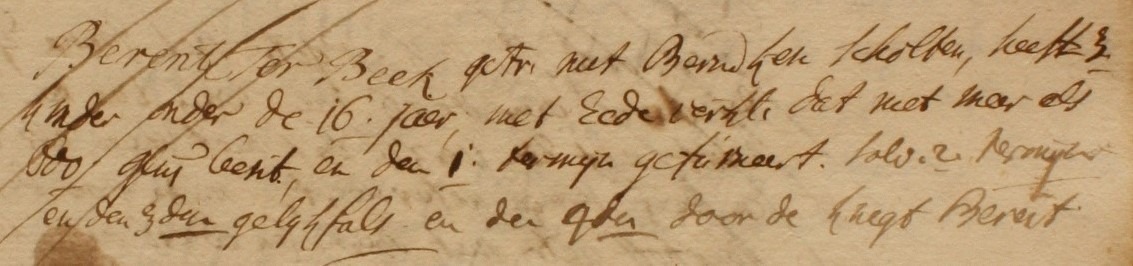 Berent Ter Beek getr. met Berndken Scholten, heeft 3
kinder onder de 16. jaer, met Eede verkl. dat niet meer als
600 guns besit, en den 1. termijn gefurneert. solv. 2. termijn
en den 3den gelykfals en den 4den door de knegt Berent